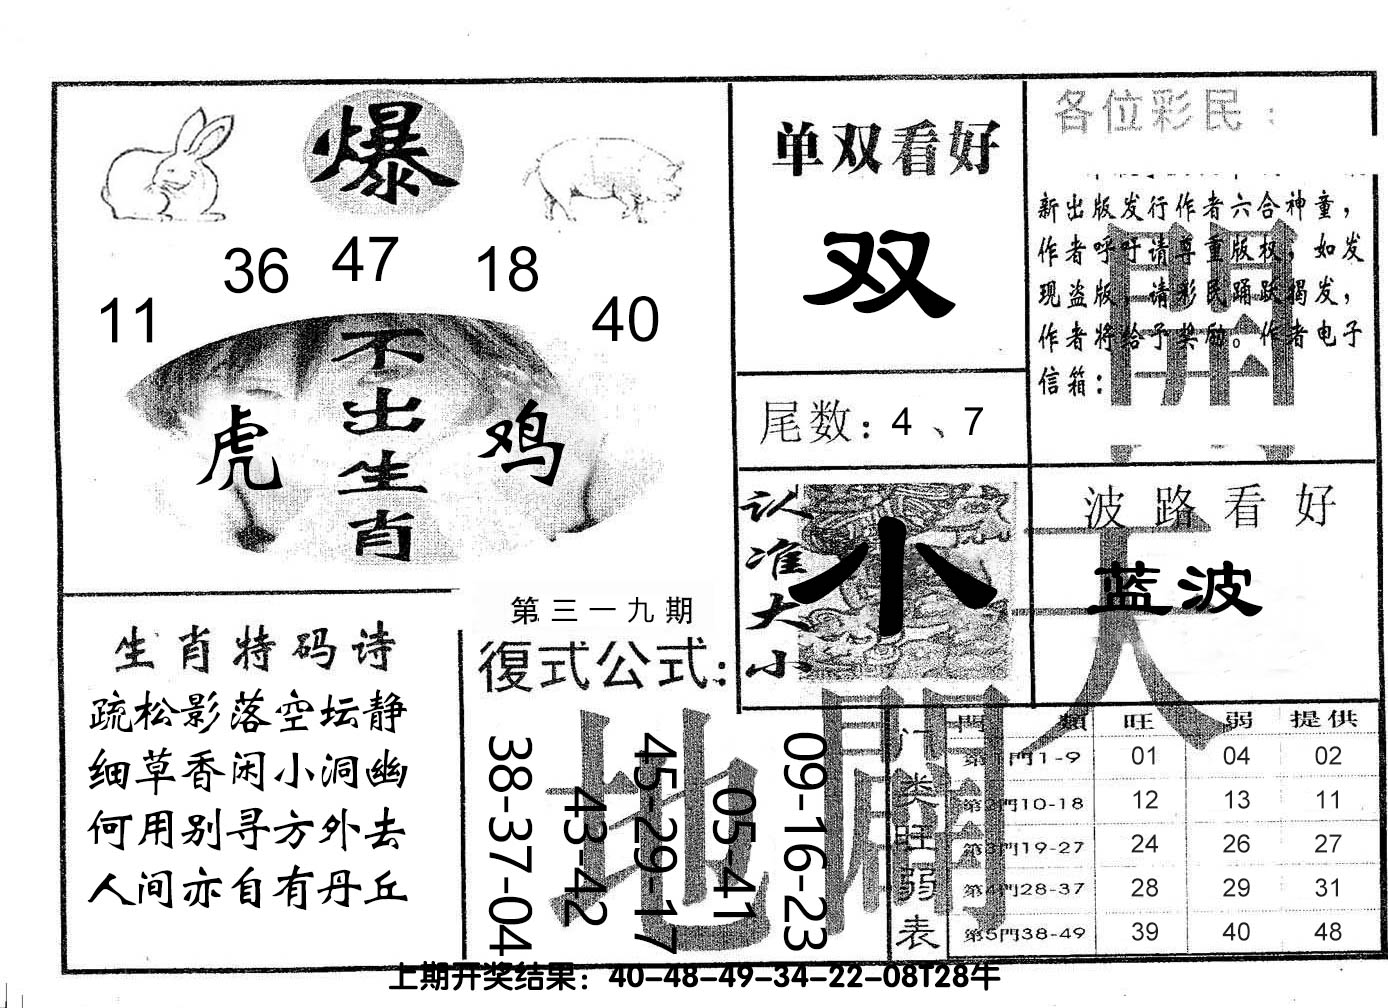 爆
36 47 18
11 40
不出生肖
虎 鸡
单双看好
双
尾数：4、7
各位彩民：
新出版发行作者六合神童，
作者呼吁请尊重版权，如发
现盗版，请彩民踊跃揭发，
作者将给予奖励。作者电子
信箱：
認准大小
小
波路看好
蓝波
生肖特码诗
疏松影落空坛静
细草香闲小洞幽
何用别寻方外去
人间亦自有丹丘
第三一九期
復式公式：
38-37-04
43-42
45-29-17
05-41
09-16-23
天
開
地
闢
门类旺弱表
門類 旺 弱 提供
第1門1-9 01 04 02
第2門10-18 12 13 11
第3門19-27 24 26 27
第4門28-37 28 29 31
第5門38-49 39 40 48
上期开奖结果：40-48-49-34-22-08T28牛